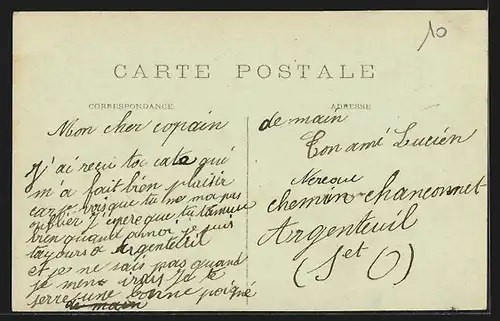 10
CARTE POSTALE
CORRESPONDANCE
ADRESSE
Mon cher copain
J'ai reçu ta cate qué
m'a fait bien plaisir
car vois que tu ne ma pas
oublier J'espere que tu t'amuse
bien quand a moi je suis
tayours a Argenteuil
et je ne sais pas quand
je men irais Je te
serre une bonne poigné
de main
de main
Ton ami Lucien
chemin chanconnet
Argenteuil
(S et O)